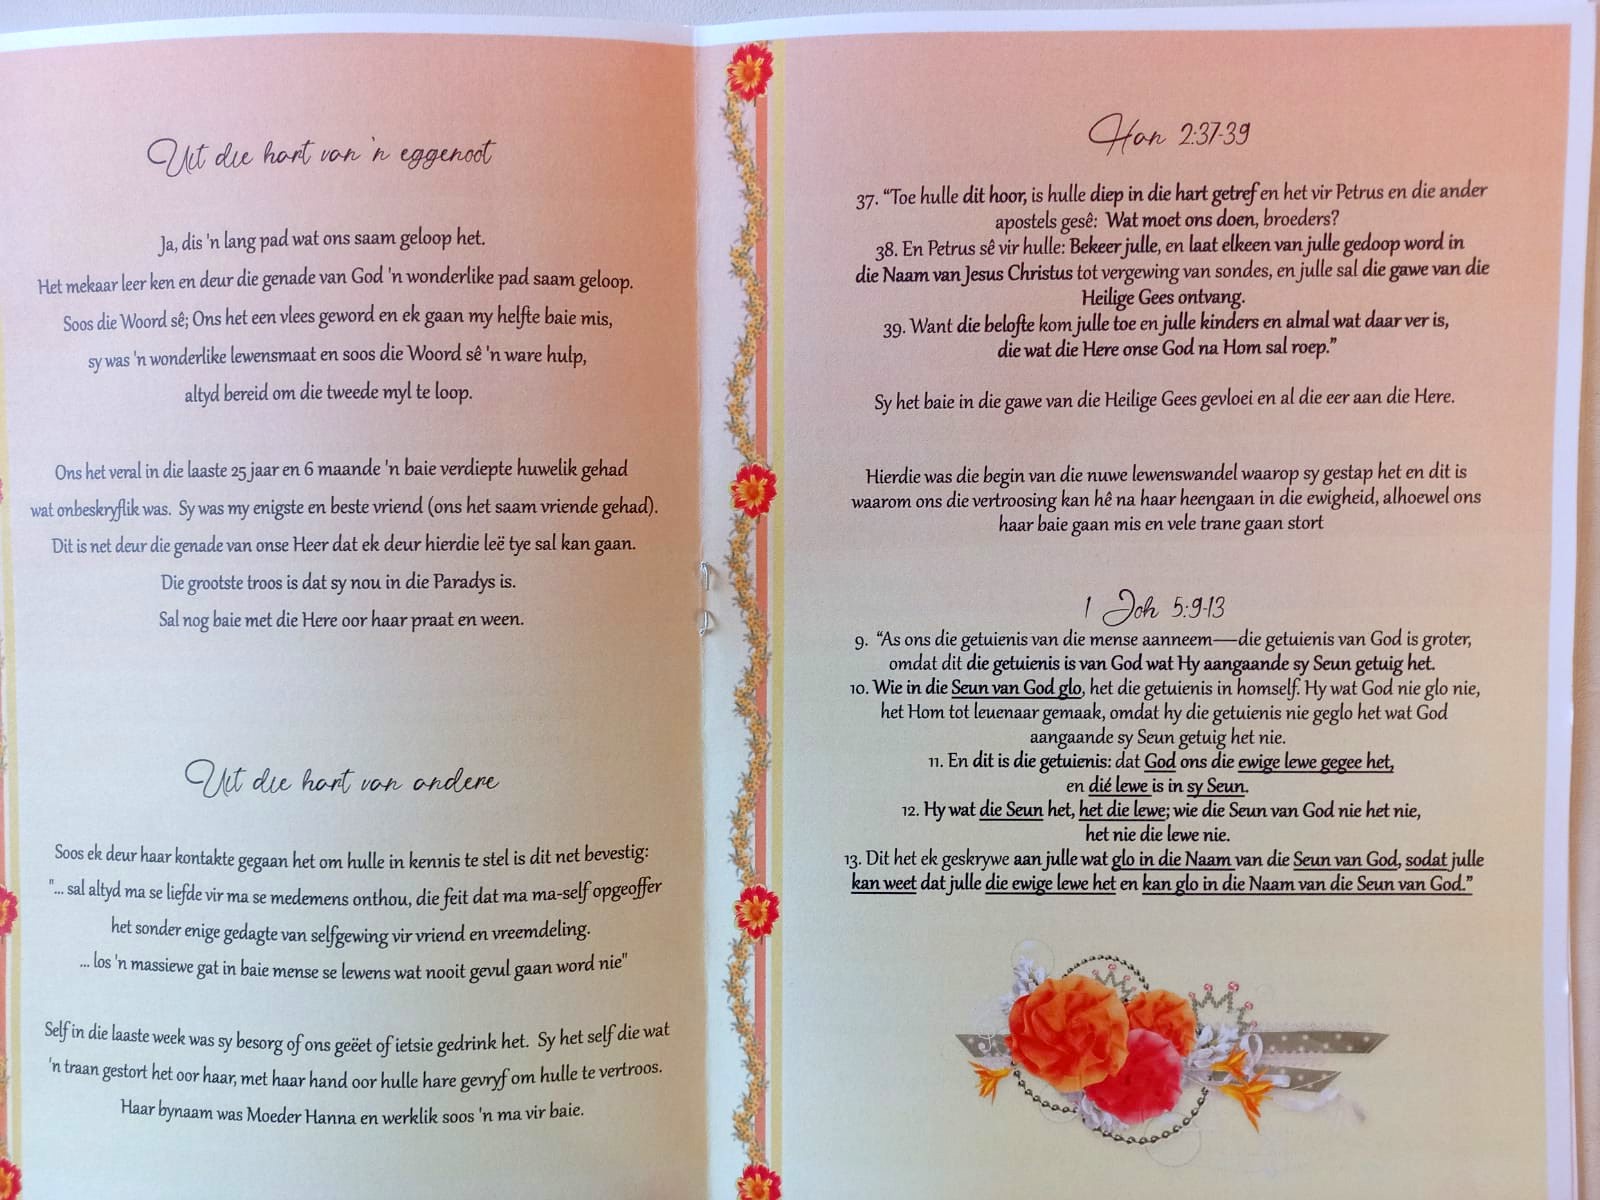 Uit die hart van 'n eggenoot
Ja, dis 'n lang pad wat ons saam geloop het.
Het mekaar leer ken en deur die genade van God 'n wonderlike pad saam geloop.
Soos die Woord sê; Ons het een vlees geword en ek gaan my helfte baie mis,
sy was 'n wonderlike lewensmaat en soos die Woord sê 'n ware hulp,
altyd bereid om die tweede myl te loop.
Ons het veral in die laaste 25 jaar en 6 maande 'n baie verdiepte huwelik gehad
wat onbeskryflik was. Sy was my enigste en beste vriend (ons het saam vriende gehad).
Dit is net deur die genade van onse Heer dat ek deur hierdie leë tye sal kan gaan.
Die grootste troos is dat sy nou in die Paradys is.
Sal nog baie met die Here oor haar praat en ween.
Uit die hart van andere
Soos ek deur haar kontakte gegaan het om hulle in kennis te stel is dit net bevestig:
"... sal altyd ma se liefde vir ma se medemens onthou, die feit dat ma ma-self opgeoffer
het sonder enige gedagte van selfgewing vir vriend en vreemdeling.
... los 'n massiewe gat in baie mense se lewens wat nooit gevul gaan word nie"
Self in die laaste week was sy besorg of ons geëet of ietsie gedrink het. Sy het self die wat
'n traan gestort het oor haar, met haar hand oor hulle hare gevryf om hulle te vertroos.
Haar bynaam was Moeder Hanna en werklik soos 'n ma vir baie.
Han 2:37-39
37. “Toe hulle dit hoor, is hulle diep in die hart getref en het vir Petrus en die ander
apostels gesê: Wat moet ons doen, broeders?
38. En Petrus sê vir hulle: Bekeer julle, en laat elkeen van julle gedoop word in
die Naam van Jesus Christus tot vergewing van sondes, en julle sal die gawe van die
Heilige Gees ontvang.
39. Want die belofte kom julle toe en julle kinders en almal wat daar ver is,
die wat die Here onse God na Hom sal roep.”
Sy het baie in die gawe van die Heilige Gees gevloei en al die eer aan die Here.
Hierdie was die begin van die nuwe lewenswandel waarop sy gestap het en dit is
waarom ons die vertroosing kan hê na haar heengaan in die ewigheid, alhoewel ons
haar baie gaan mis en vele trane gaan stort
1 Joh 5:9-13
9. “As ons die getuienis van die mense aanneem—die getuienis van God is groter,
omdat dit die getuienis is van God wat Hy aangaande sy Seun getuig het.
10. Wie in die Seun van God glo, het die getuienis in homself. Hy wat God nie glo nie,
het Hom tot leuenaar gemaak, omdat hy die getuienis nie geglo het wat God
aangaande sy Seun getuig het nie.
11. En dit is die getuienis: dat God ons die ewige lewe gegee het,
en dié lewe is in sy Seun.
12. Hy wat die Seun het, het die lewe; wie die Seun van God nie het nie,
het nie die lewe nie.
13. Dit het ek geskrywe aan julle wat glo in die Naam van die Seun van God, sodat julle
kan weet dat julle die ewige lewe het en kan glo in die Naam van die Seun van God.”